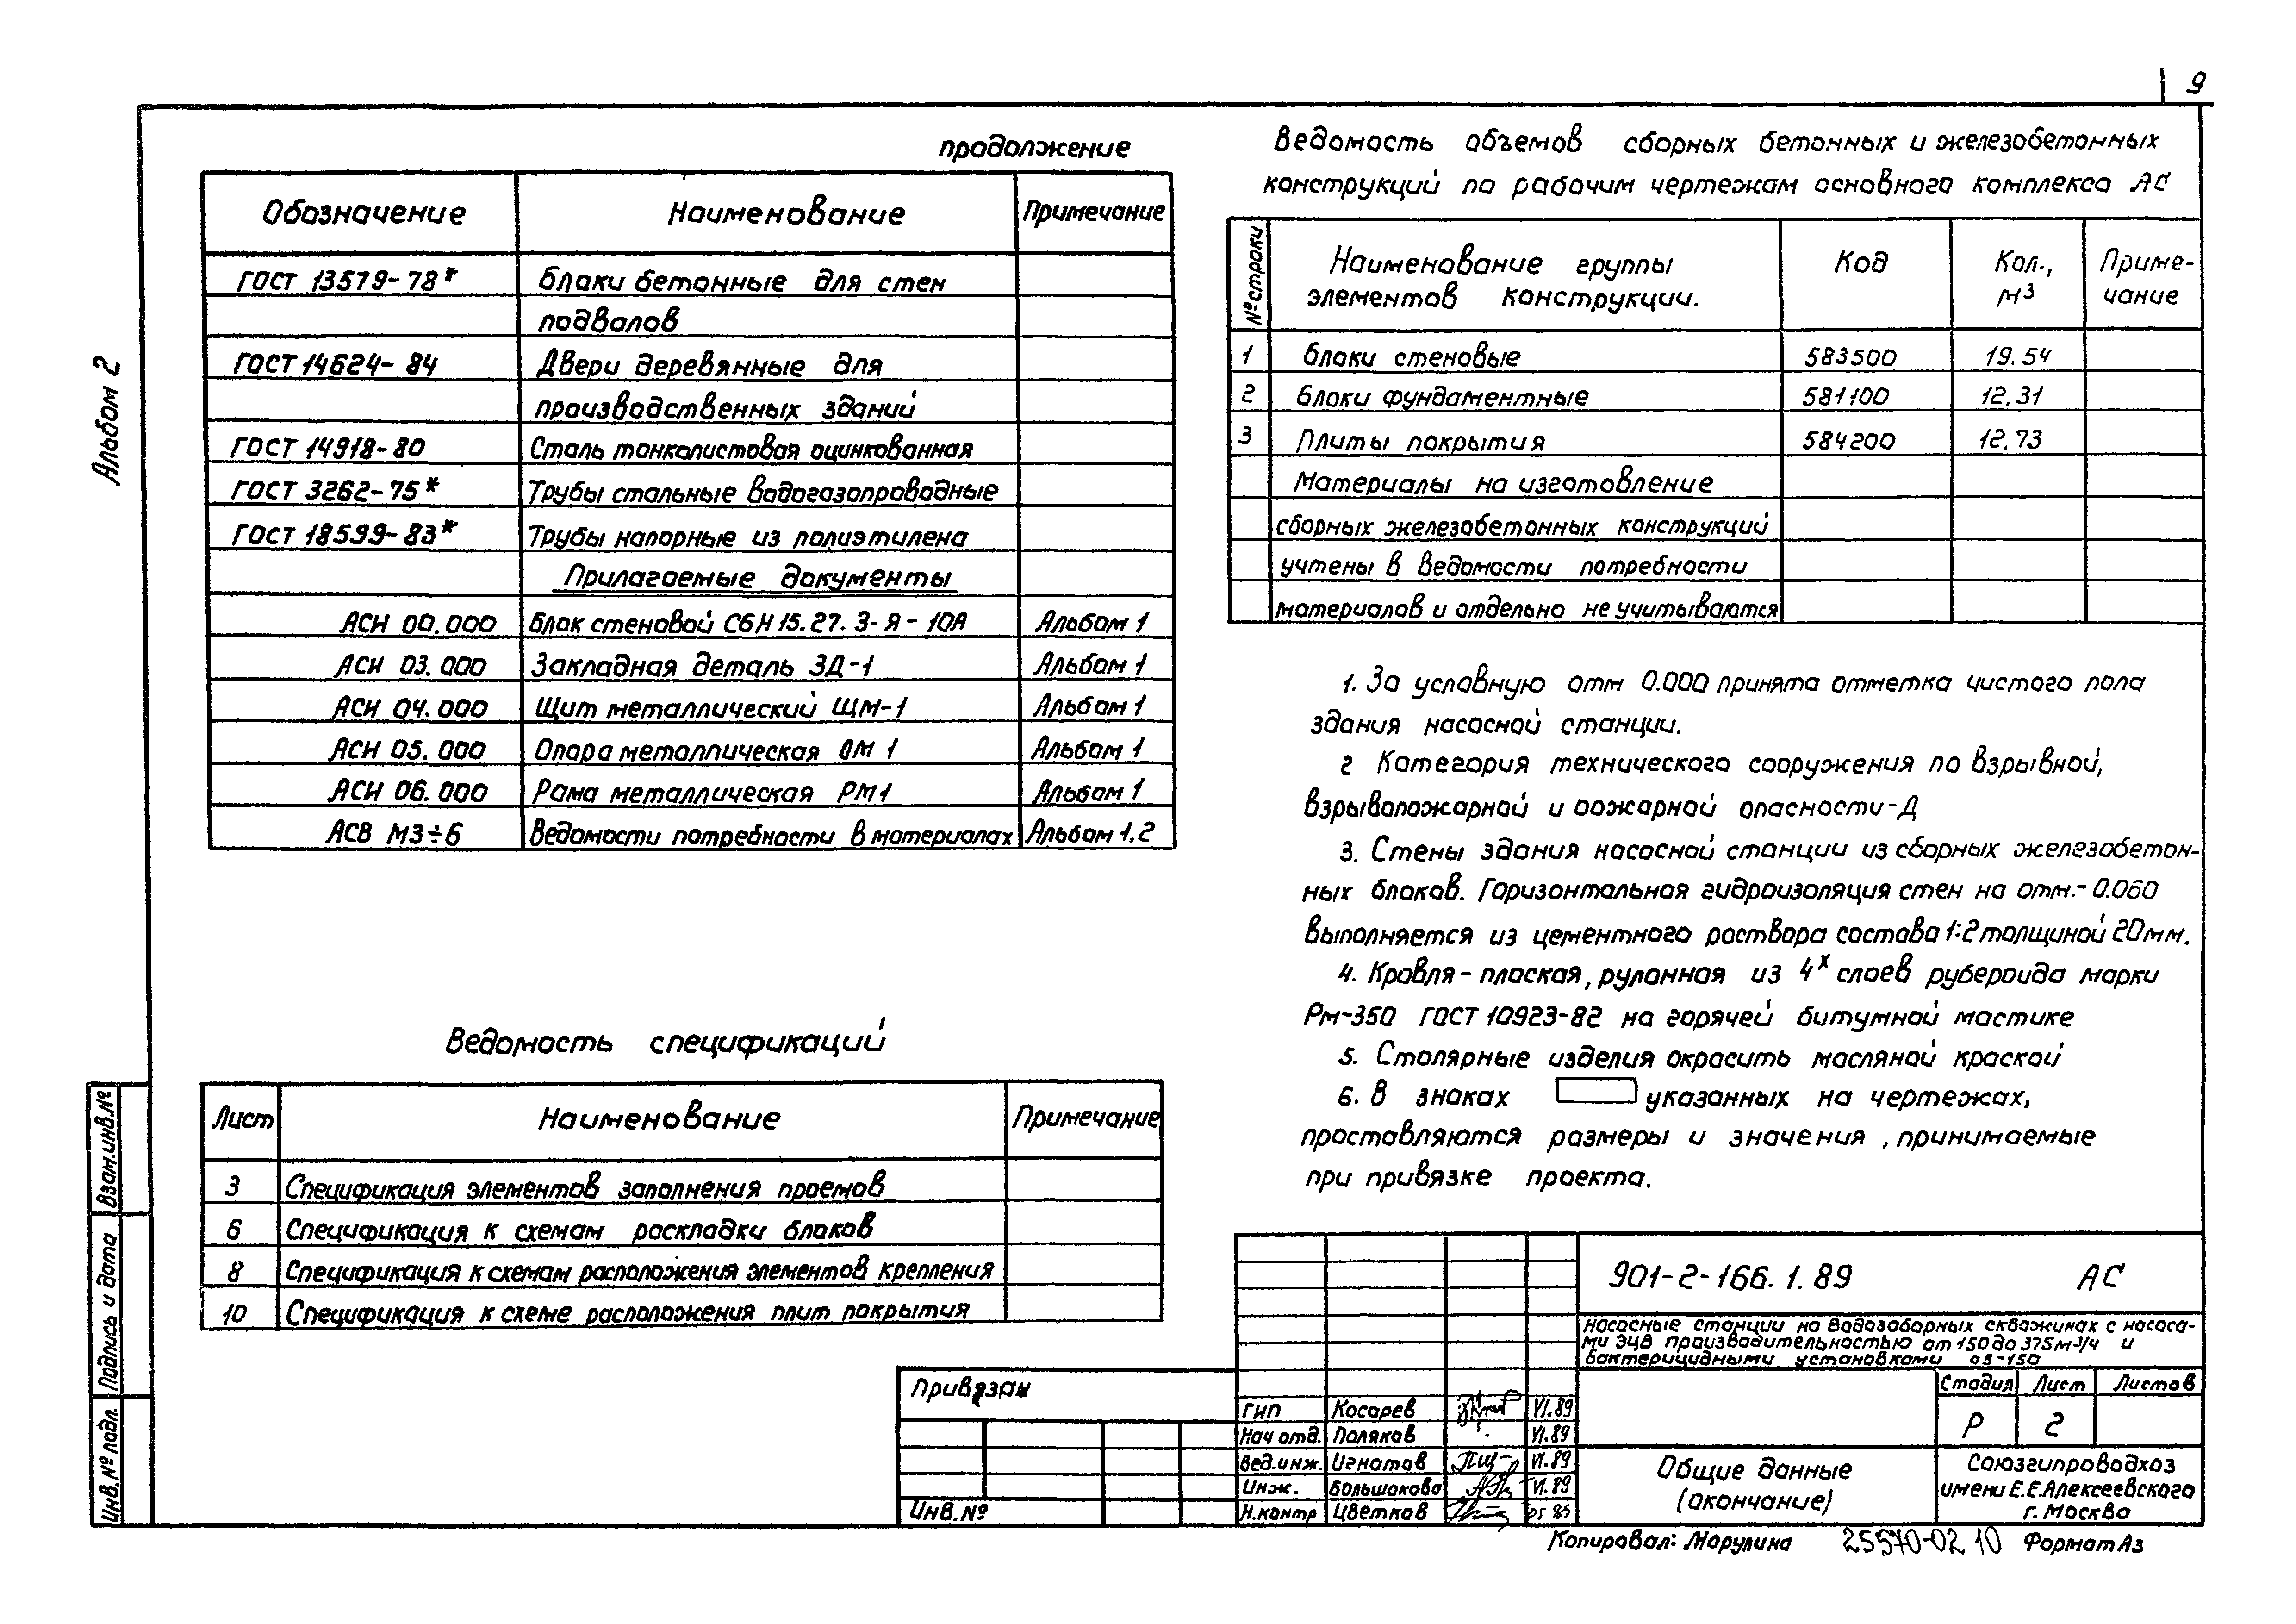 9
Альбом 2
продолжение
Обозначение Наименование Примечание
ГОСТ 13579-78* Блоки бетонные для стен
подвалов
ГОСТ 14624-84 Двери деревянные для
производственных зданий
ГОСТ 14918-80 Сталь тонколистовая оцинкованная
ГОСТ 3262-75* Трубы стальные водогазопроводные
ГОСТ 18599-83* Трубы напорные из полиэтилена
Прилагаемые документы
АСИ 00.000 Блок стеновой СБН 15.27.3-Я-10А Альбом 1
АСИ 03.000 Закладная деталь ЗД-1 Альбом 1
АСИ 04.000 Щит металлический ЩМ-1 Альбом 1
АСИ 05.000 Опора металлическая ОМ 1 Альбом 1
АСИ 06.000 Рама металлическая РМ1 Альбом 1
АСВ М3÷6 Ведомости потребности в материалах Альбом 1.2
Ведомость спецификаций
Лист Наименование Примечание
3 Спецификация элементов заполнения проемов
6 Спецификация к схемам раскладки блоков
8 Спецификация к схемам расположения элементов крепления
10 Спецификация к схеме расположения плит покрытия
Ведомость объемов сборных бетонных и железобетонных
конструкций по рабочим чертежам основного комплекса АС
№ строки Наименование группы элементов конструкции. Код Кол., м³ Приме-чание
1 блоки стеновые 583500 19.54
2 блоки фундаментные 581100 12.31
3 Плиты покрытия 584200 12.73
Материалы на изготовление
сборных железобетонных конструкций
учтены в ведомости потребности
материалов и отдельно не учитываются
1. За условную отм 0.000 принята отметка чистого пола
здания насосной станции.
2 Категория технического сооружения по взрывной,
взрывопожарной и пожарной опасности-Д
3. Стены здания насосной станции из сборных железобетон-
ных блоков. Горизонтальная гидроизоляция стен на отм.-0.060
выполняется из цементного раствора состава 1:2 толщиной 20мм.
4. Кровля-плоская, рулонная из 4х слоев рубероида марки
Рм-350 ГОСТ 10923-82 на горячей битумной мастике
5. Столярные изделия окрасить масляной краской
6. В знаках указанных на чертежах,
проставляются размеры и значения, принимаемые
при привязке проекта.
901-2-166.1.89 АС
Насосные станции на водозаборных скважинах с насоса-
ми ЭЦВ производительностью от 150 до 375м³/ч и
бактерицидными установками ов-150
Стадия Лист Листов
Р 2
Привязан
Инв.№
ГИП Косарев VI.89
Нач отд. Поляков VI.89
Вед.инж. Игнатов VI.89
Инж. Большакова VI.89
Н.контр Цветков
Общие данные
(окончание)
Союзгипроводхоз
имени Е.Е.Алексеевского
г. Москва
Взам.инв.№
Подпись и дата
Инв.№ подл.
Копировал: Марулина 25570-02 10 Формат А3